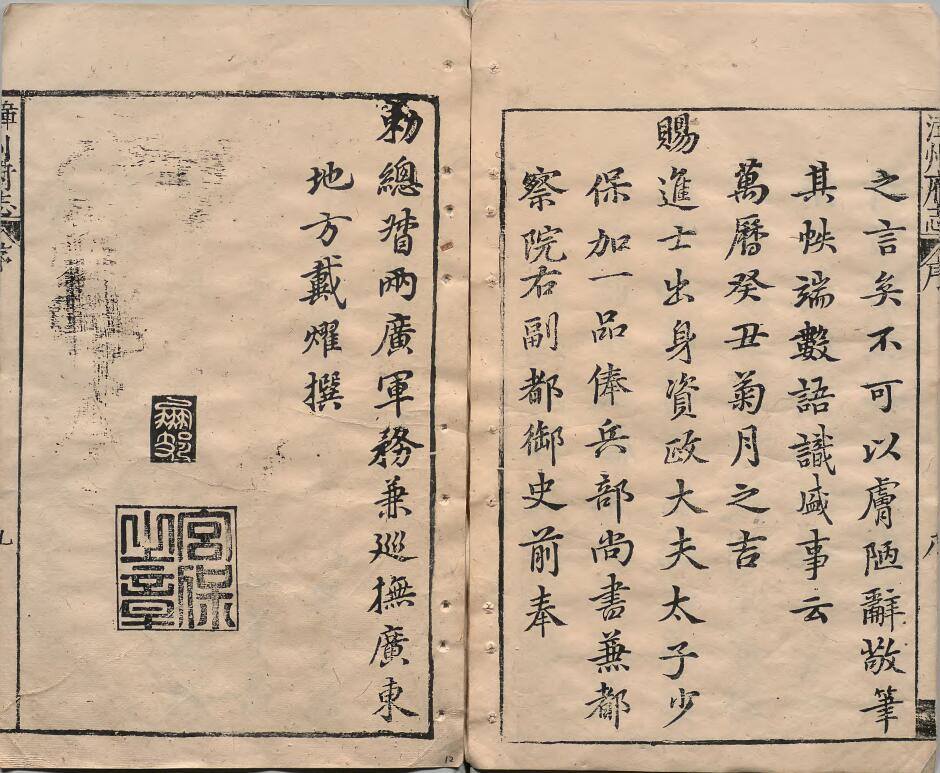 漳州府志 序 八
之言矣不可以膚陋辭敬筆
其帙端數語識盛事云
萬曆癸丑菊月之吉
賜
進士出身資政大夫太子少
保加一品俸兵部尚書兼都
察院右副都御史前奉
勅總督兩廣軍務兼巡撫廣東
地方戴燿撰
宮保之章
漳州府志 序 九
12